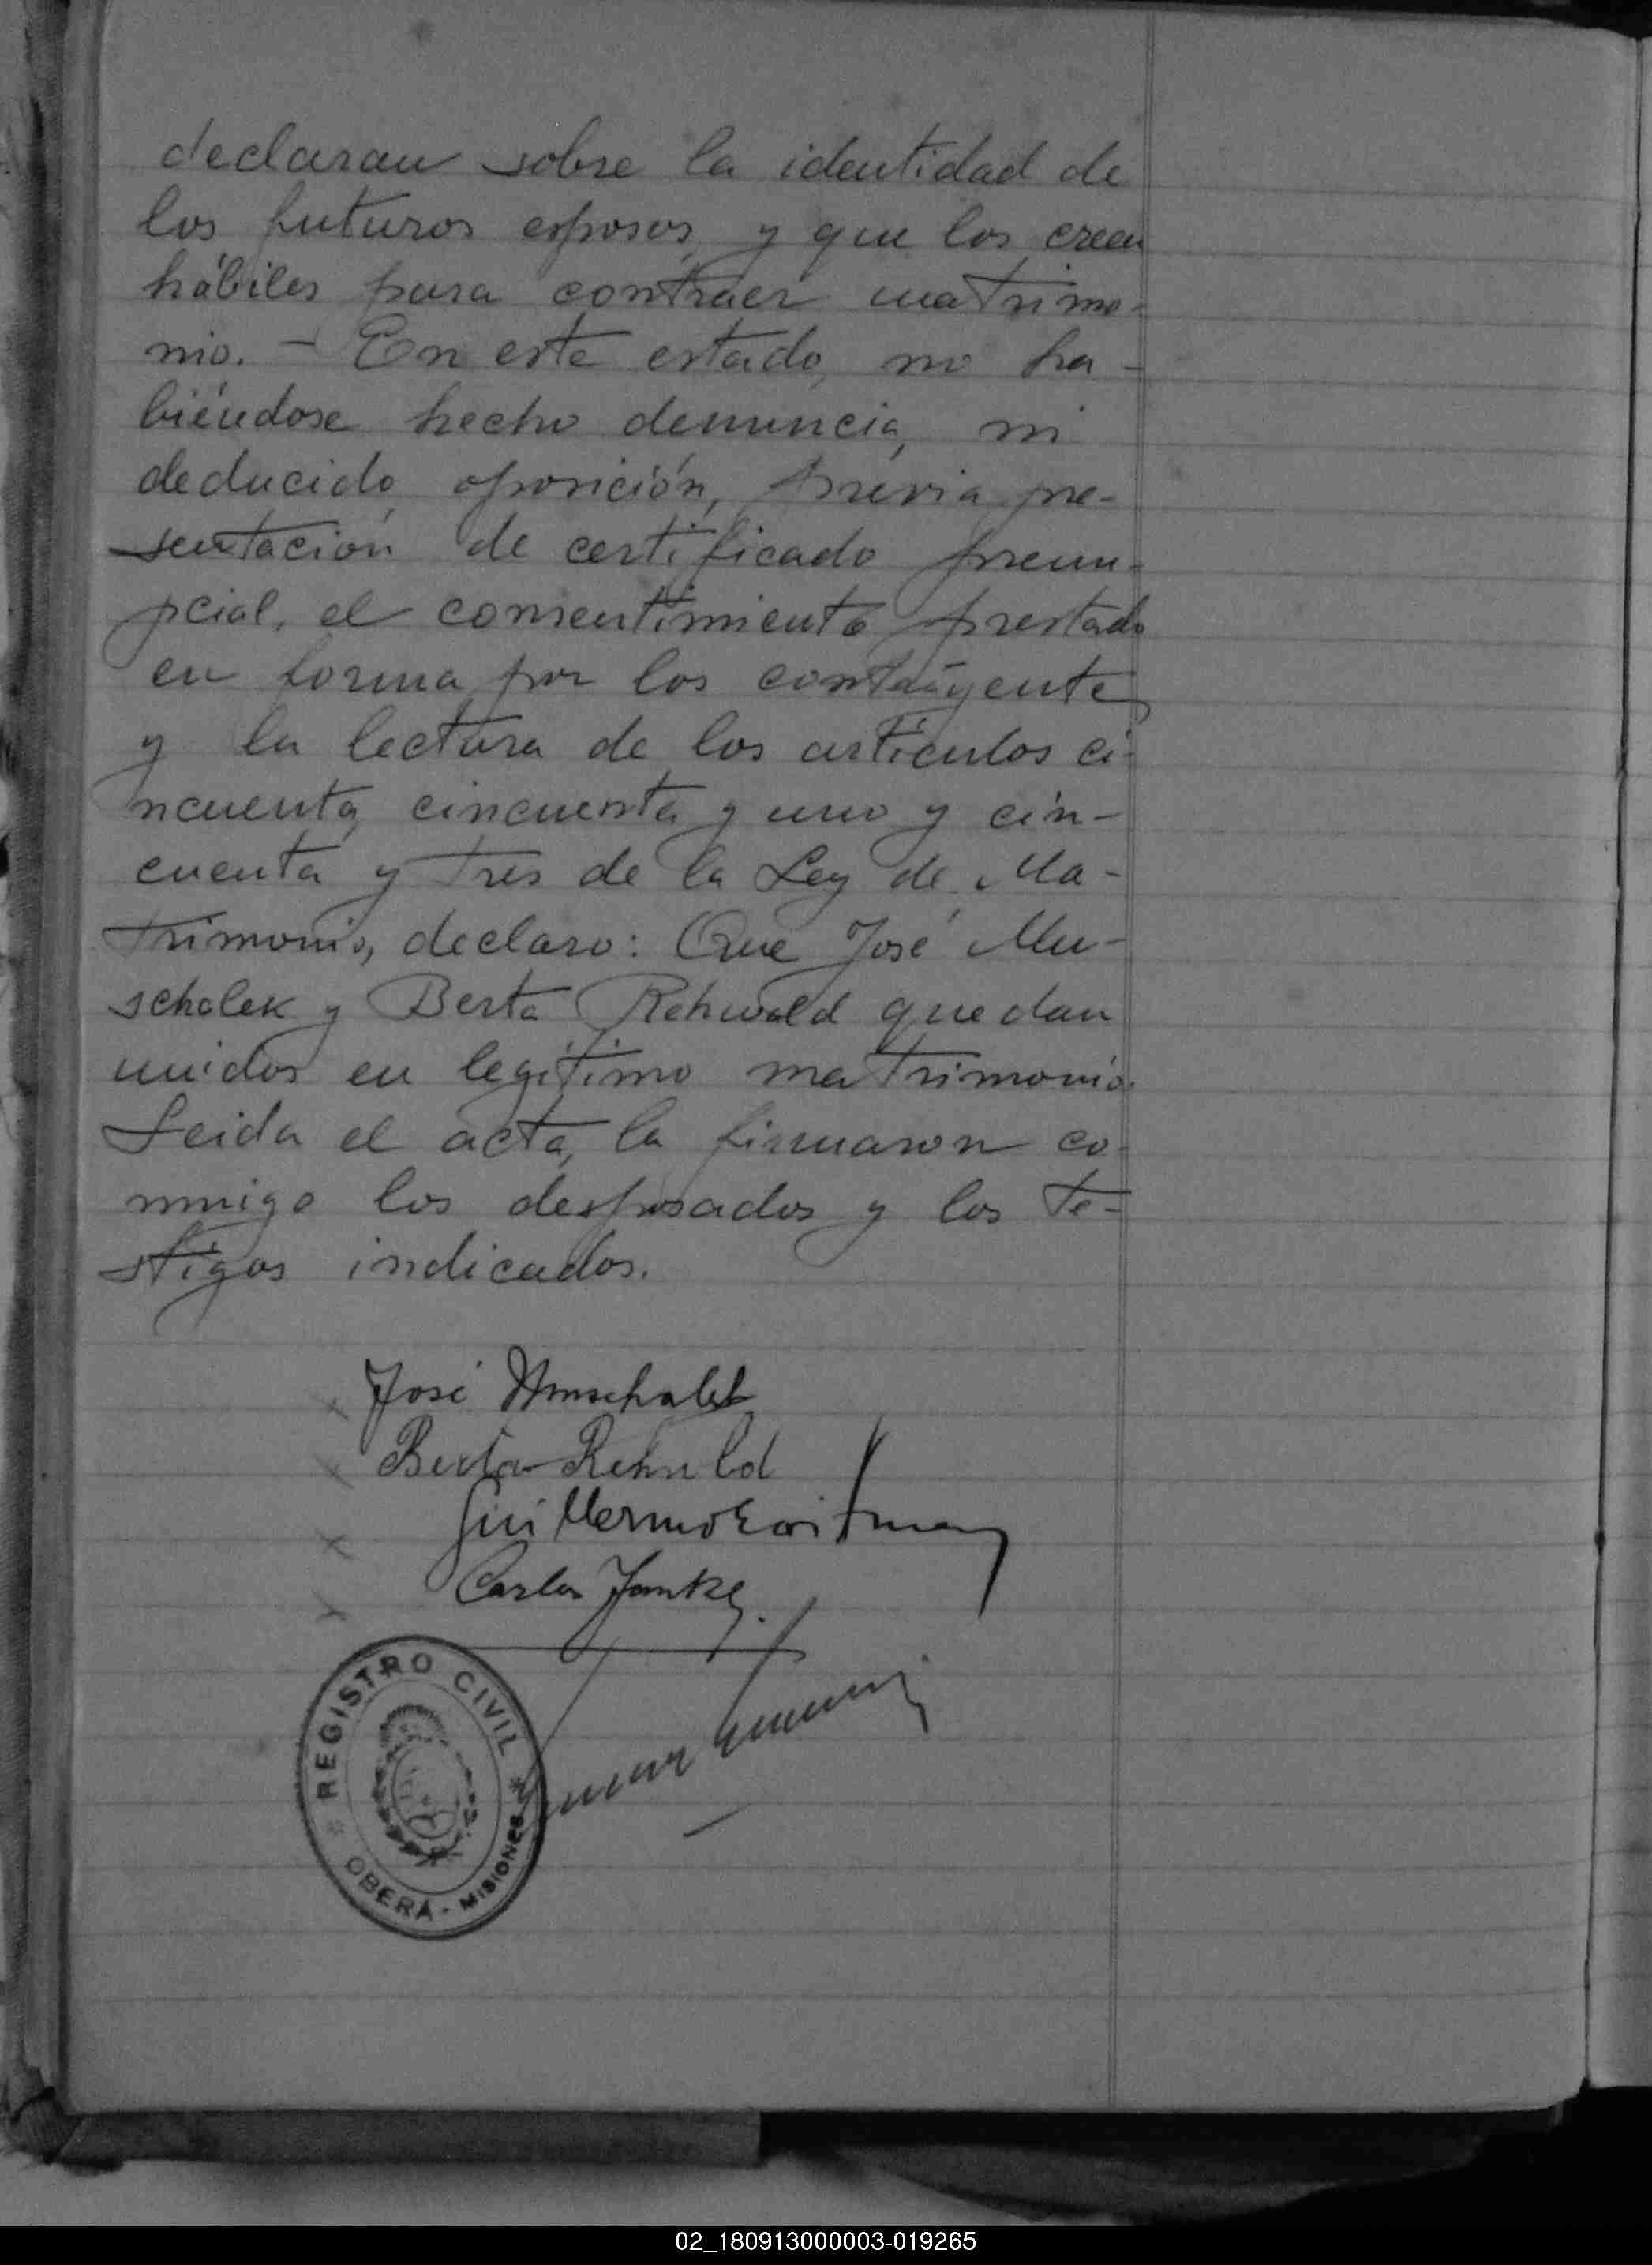 declaran sobre la identidad de
los futuros esposos, y que los creen
hábiles para contraer matrimo-
nio. - En este estado, no ha-
biéndose hecho denuncia, ni
deducido oposición, previa pre-
sentación de certificado prenu-
pcial, el consentimiento prestado
en forma por los contrayentes
y la lectura de los artículos ci-
ncuenta, cincuenta y uno y cin-
cuenta y tres de la Ley de Ma-
trimonio, declaro: Que José Mu-
scholek y Berta Rehwald quedan
unidos en legítimo matrimonio.
Leida el acta, la firmaron co-
nmigo los desposados y los te-
stigos indicados.
José
Berta Rehwald
Guillermo
Carlos Janke.
REGISTRO CIVIL
OBERÁ - MISIONES
02_180913000003-019265